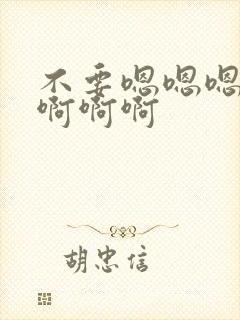 不要嗯嗯嗯
啊啊啊
胡忠信